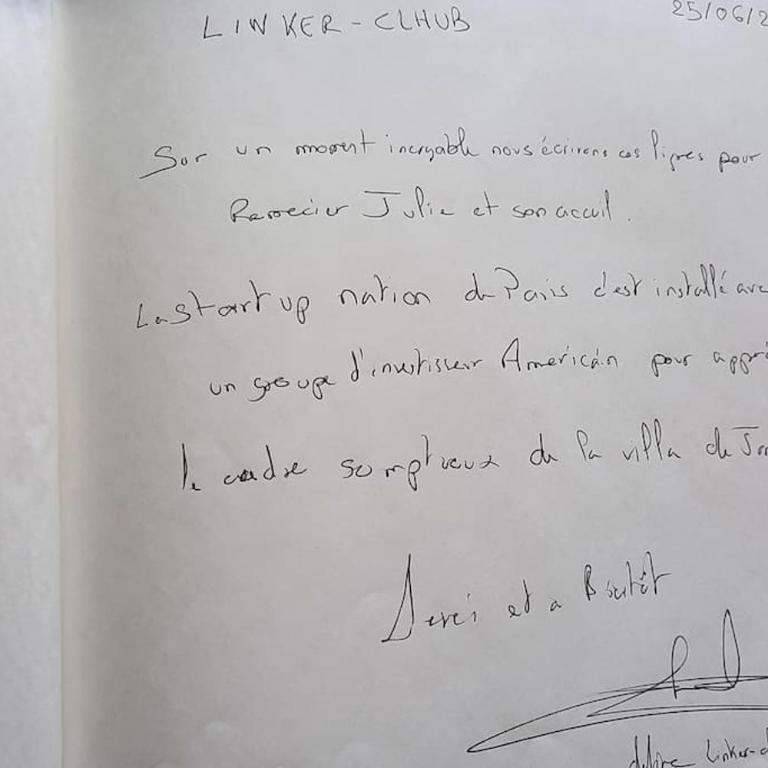 LINKER-CLHUB
25/06/2
Sur un moment incroyable nous écrivons ces lignes pour
Remercier Julie et son accueil.
La startup nation de Paris c'est installé ave
un groupe d'investisseur Américain pour appré
le cadre somptueux de la villa de
Merci et a Bientôt
Linker-c